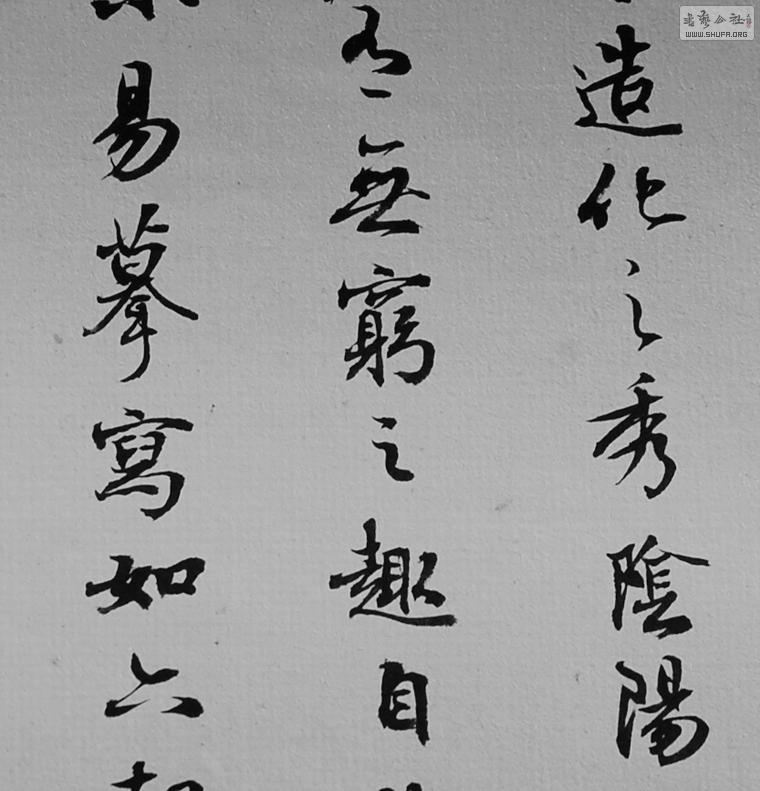 造化之秀陰陽
有無窮之趣自
易摹寫如六朝
書藝公社
WWW.SHUFA.ORG